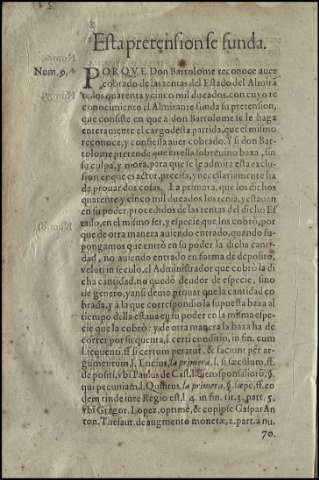 Esta pretension se funda.
Num. 9.
PORQVE Don Bartolome reconoce auer
cobrado de las rentas del Estado del Almirā
te los quarenta y cinco mil ducados, con cuyo re
conocimiento el Almirante funda su pretension,
que consiste en que a don Bartolome se le haga
enteramente el cargo desta partida, que el mismo
reconoce, y confiessa auer cobrado. Y si don Bar
tolome pretende que en ella sobreuino baxa, sin
su culpa, y mora, para que se le admita esta exclu
sion en que es actor, precisa, y necessariamente ha
de prouar dos cosas. La primera, que los dichos
quarenta y cinco mil ducados los tenia, y estauan
en su poder, procedidos de las rentas del dicho Es
tado, en el mismo ser, y especie que los cobrò, por
que de otra manera auiendo entrado, quando su
pongamos que entrò en su poder la dicha canti
dad, no auiendo entrado en forma de deposito,
velut in sæculo, el Administrador que cobrò la di
cha cantidad, no quedò deudor de especie, sino
de genero, y ansi deuio prouar que la cantidad co
brada, y a la que correspondio la supuesta baxa al
tiempo della estaua en su poder en la misma espe
cie que la cobrò: y de otra manera la baxa ha de
correr por su quenta, l. certi conditio, in fin. cum
l. sequenti. ff. si certum petatur, & faciunt per ar
gumentum, l. Lucius, la primera, l. si sæculum. ff.
de positi, vbi Paulus de Cast. l. titem sponsaliorū, §.
qui pecuniam. l. Quintus, la primera, §. sæpe, ff. eo
dem tit. de iure Regio est l. 4. in fin. tit. 3. part. 5.
vbi Gregor. Lopez, optime, & copiose Gaspar An
ton. Thesaur. de augmento monetæ, 2. part. a nu.
70.